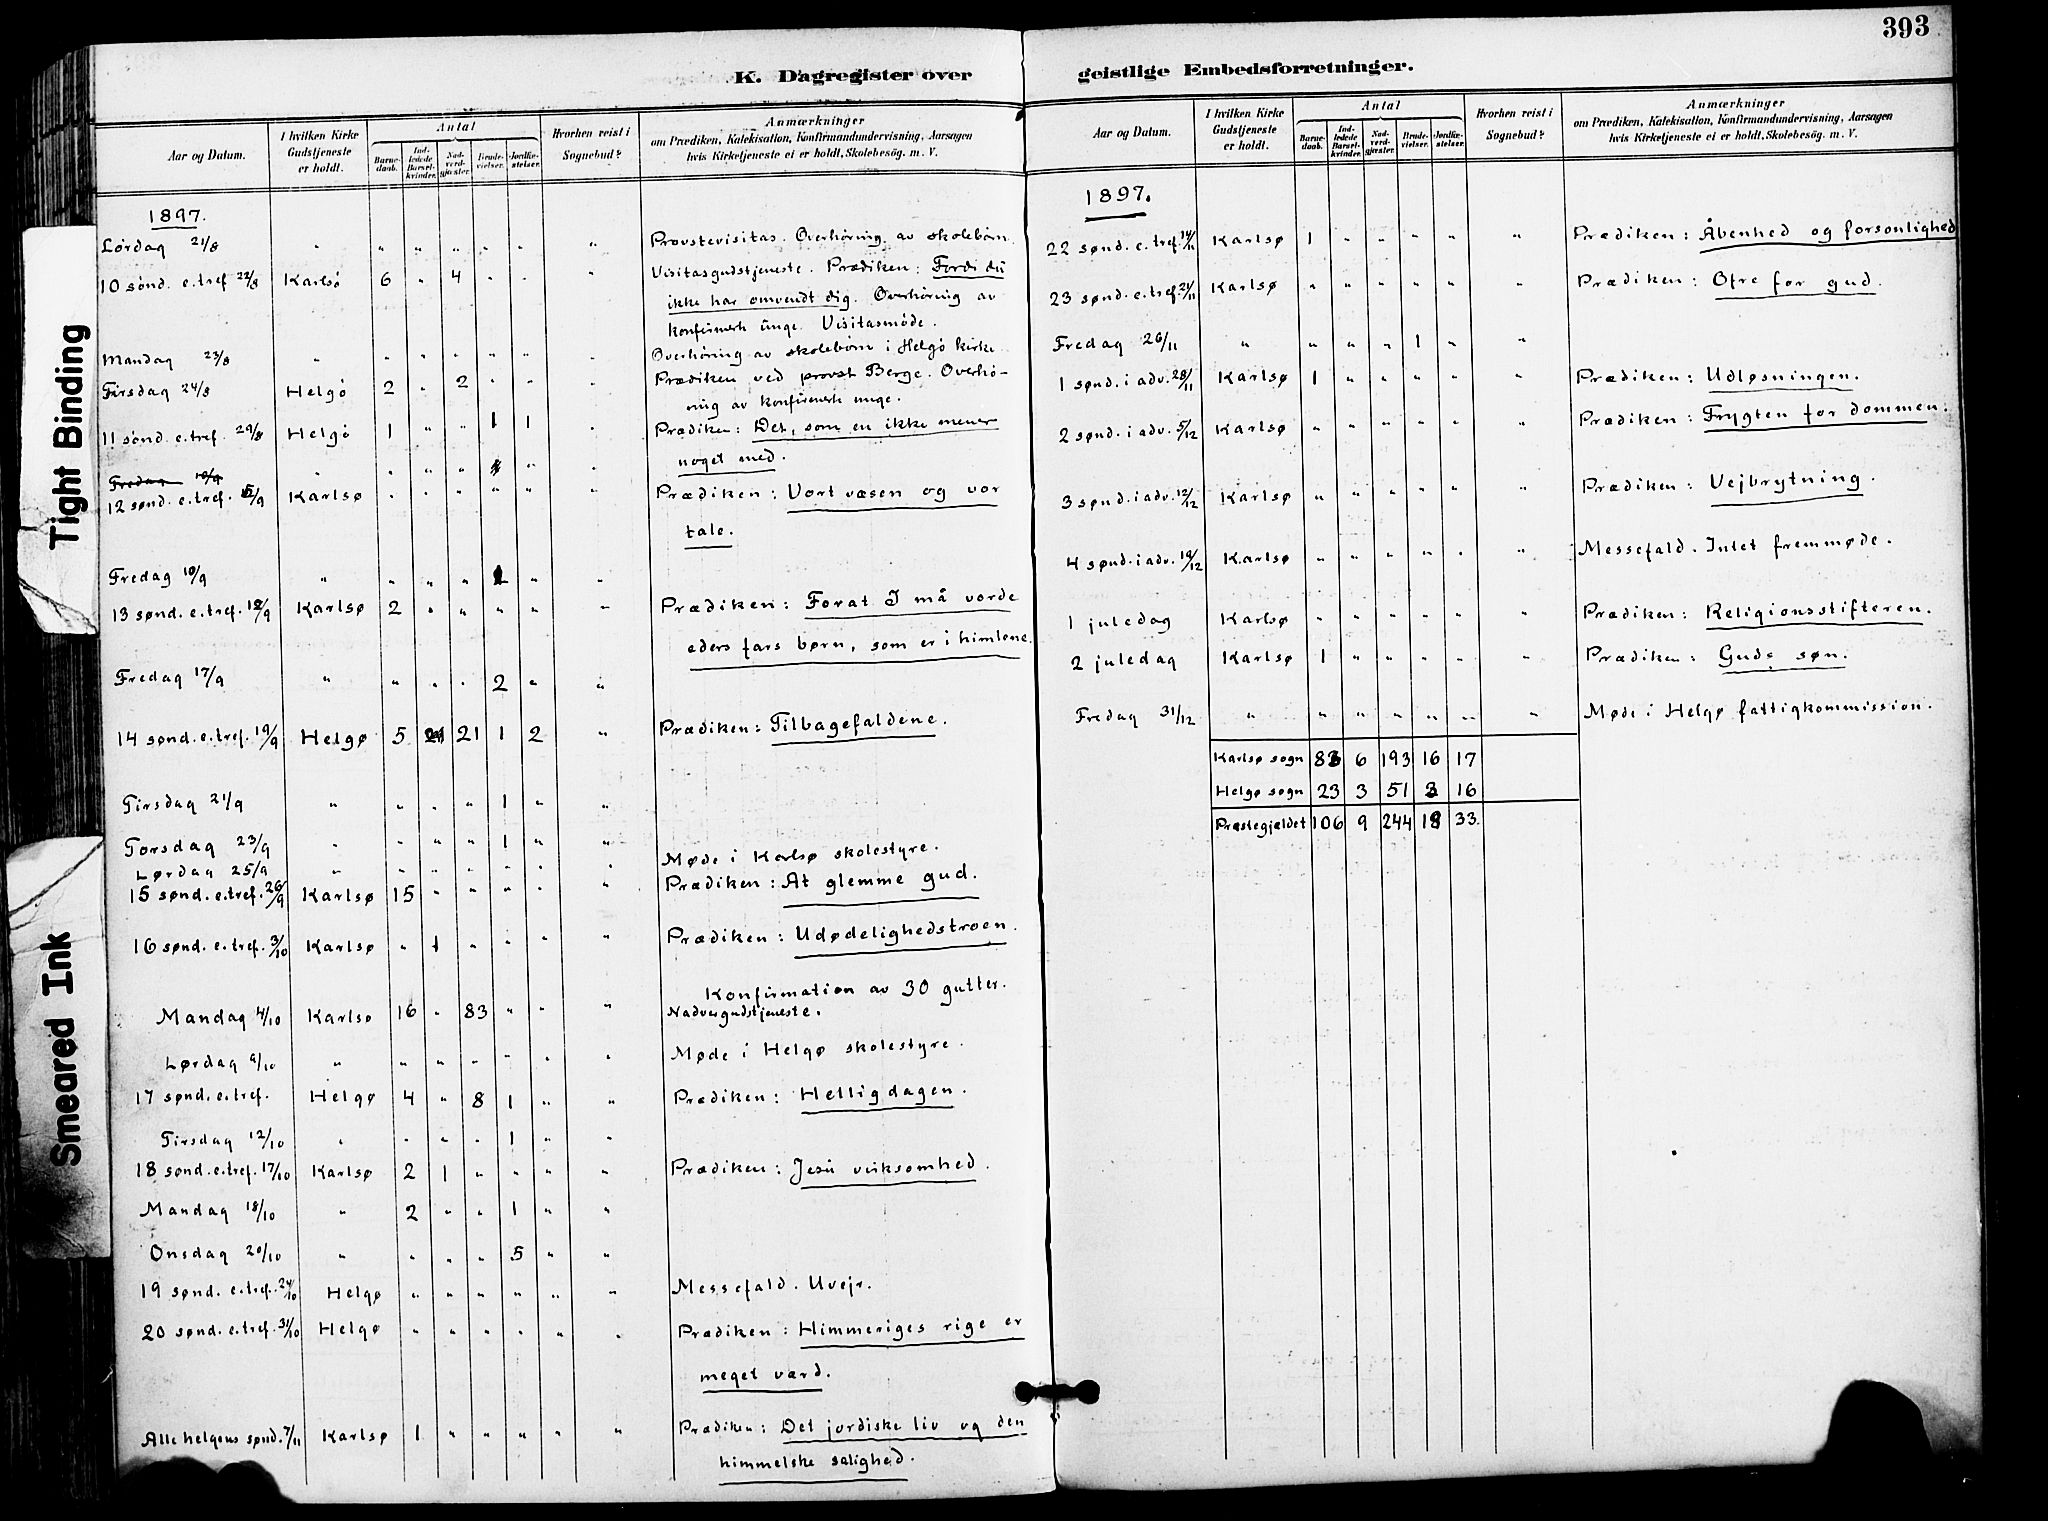 393
K. Dagregister over geistlige Embedsforretninger.
Tight Binding
Smeared Ink
Aar og Datum.
I hvilken Kirke Gudstjeneste er holdt.
Antal
Barnedaab.
Indledede Barselkvinder.
Nadverdgjæster.
Brudevielser.
Jordfæstelser.
Hvorhen reist i Sognebud?
Anmærkninger
om Prædiken, Katekisation, Konfirmandundervisning, Aarsagen
hvis Kirketjeneste ei er holdt, Skolebesög. m. V.
1897.
Lørdag 21/8 " " " " " " " Provstevisitas. Overhøring av skolebørn.
10 sønd. e. tref 22/8 Karlsø 6 " 4 " " " Visitasgudstjeneste. Prædiken: Fordi du
ikke har omvendt dig. Overhøring av
konfirmerte unge. Visitasmøde.
Mandag 23/8 " " " " " " " Overhøring av skolebørn i Helgø kirke
Tirsdag 24/8 Helgø 2 " 2 " " " Prædiken ved provst Berge. Overhø-
ring av konfirmerte unge.
11 sønd. e. tref. 29/8 Helgø 1 " " 1 1 " Prædiken: Det, som en ikke mener
noget med.
Fredag 10/9 " " " " " "
12 sønd. e. tref. 5/9 Karlsø " " " " " " Prædiken: Vort væsen og vor
tale.
Fredag 10/9 " " " " 1 " "
13 sønd. e. tref. 12/9 Karlsø 2 " " " " " Prædiken: Forat I må vorde
eders fars børn, som er i himlene.
Fredag 17/9 " " " " 2 " "
14 sønd. e. tref. 19/9 Helgø 5 21 1 2 " Prædiken: Tilbagefaldene.
Tirsdag 21/9 " " " " 1 " "
Torsdag 23/9 " " " " 1 " "
Lørdag 25/9 " " " " " " " Møde i Karlsø skolestyre.
15 sønd. e. tref. 26/9 Karlsø 15 " " " " " Prædiken: At glemme gud.
16 sønd. e. tref. 3/10 Karlsø " 1 " " " " Prædiken: Udødelighedstroen.
Konfirmation av 30 gutter.
Mandag 4/10 Karlsø 16 " 83 " " " Nadvergudstjeneste.
Lørdag 9/10 " " " " " " " Møde i Helgø skolestyre.
17 sønd. e. tref. Helgø 4 " 8 1 " " Prædiken: Helligdagen.
Tirsdag 12/10 " " " " 1 " "
18 sønd. e. tref. 17/10 Karlsø 2 1 " " " " Prædiken: Jesu virksomhed.
Mandag 18/10 " 2 " " 1 " "
Onsdag 20/10 " " " " 5 " "
19 sønd. e. tref. 24/10 Helgø " " " " " " Messefald. Uvejr.
20 sønd. e. tref. 31/10 Helgø " " " " " " Prædiken: Himmeriges rige er
meget værd.
Alle helgens sønd. 7/11 Karlsø 1 " " " " " Prædiken: Det jordiske liv og den
himmelske salighed.
Aar og Datum.
I hvilken Kirke Gudstjeneste er holdt.
Antal
Barnedaab.
Indledede Barselkvinder.
Nadverdgjæster.
Brudevielser.
Jordfæstelser.
Hvorhen reist i Sognebud?
Anmærkninger
om Prædiken, Katekisation, Konfirmandundervisning, Aarsagen
hvis Kirketjeneste ei er holdt, Skolebesög. m. V.
1897.
22 sønd. e. tref. 14/11 Karlsø 1 " " " " " Prædiken: Åbenhed og forsonlighed
23 sønd. e. tref. 21/11 Karlsø " " " " " " Prædiken: Ofre for gud.
Fredag 26/11 " " " " 1 " "
1 sønd. i adv. 28/11 Karlsø 1 " " " " " Prædiken: Udløsningen.
2 sønd. i adv. 5/12 Karlsø " " " " " " Prædiken: Frygten for dommen.
3 sønd. i adv. 12/12 Karlsø " " " " " " Prædiken: Vejbrytning.
4 sønd. i adv. 19/12 Karlsø " " " " " " Messefald. Intet fremmøde.
1 juledag Karlsø " " " " " " Prædiken: Religionsstifteren.
2 juledag Karlsø 1 " " " " " Prædiken: Guds søn.
Fredag 31/12 " " " " " " " Møde i Helgø fattigkommission.
Karlsø sogn 83 6 193 16 17
Helgø sogn 23 3 51 16
Præstegjældet 106 9 244 33.